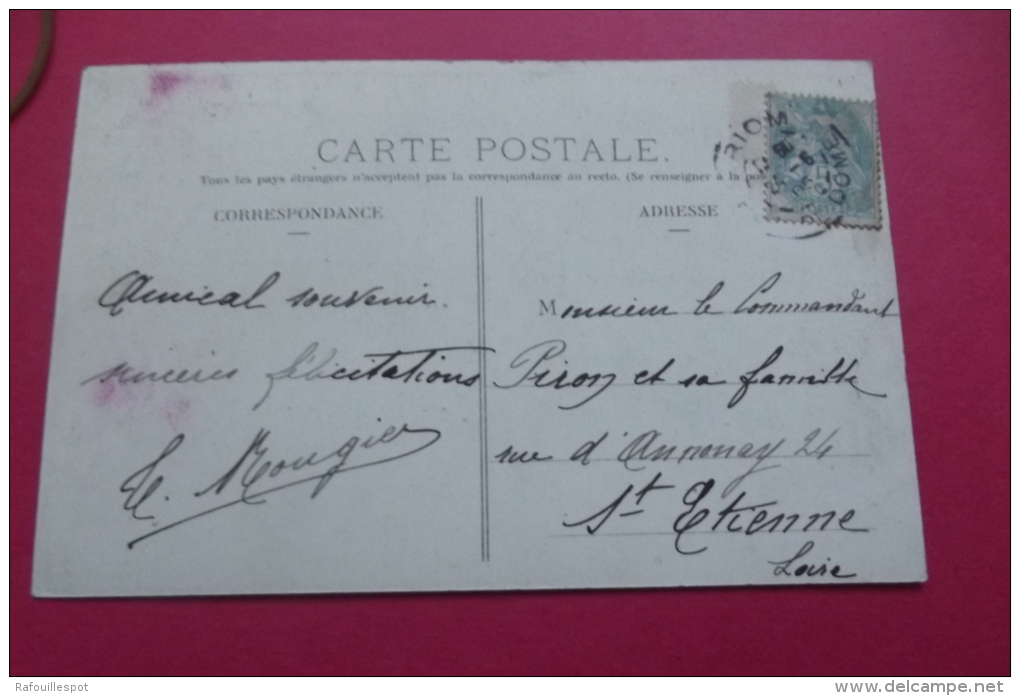 CARTE POSTALE.
Tous les pays étrangers n'acceptent pas la correspondance au recto. (Se renseigner à la
CORRESPONDANCE
Amical souvenir.
sincères félicitations
E. Mougier
ADRESSE
RIOM
Monsieur le Commandant
Piron et sa famille
rue d'Annonay 24
St Etienne
Loire
Rafouillespot
www.delcampe.net